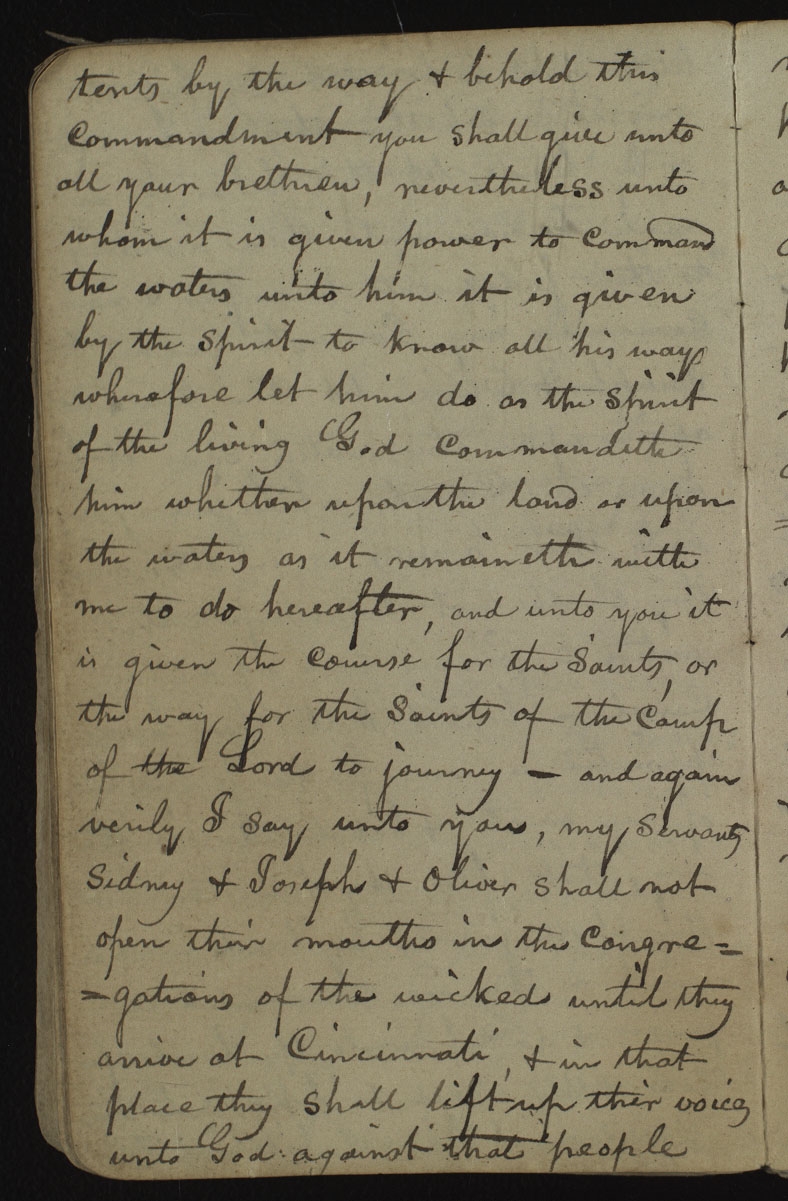 tents by the way & behold this
commandment you shall give unto
all your brethren, nevertheless unto
whom it is given power to command
the waters unto him it is given
by the spirit to know all his ways
wherefore let him do as the spirit
of the living God commandeth
him whether upon the land or upon
the waters as it remaineth with
me to do hereafter, and unto you it
is given the course for the Saints, or
the way for the Saints of the Camp
of the Lord to journey – and again
verily I say unto you, my servants
Sidney & Joseph & Oliver shall not
open their mouths in the Congre=
=gations of the wicked until they
arrive at Cincinnati, & in that
place they shall lift up their voices
unto God against that people